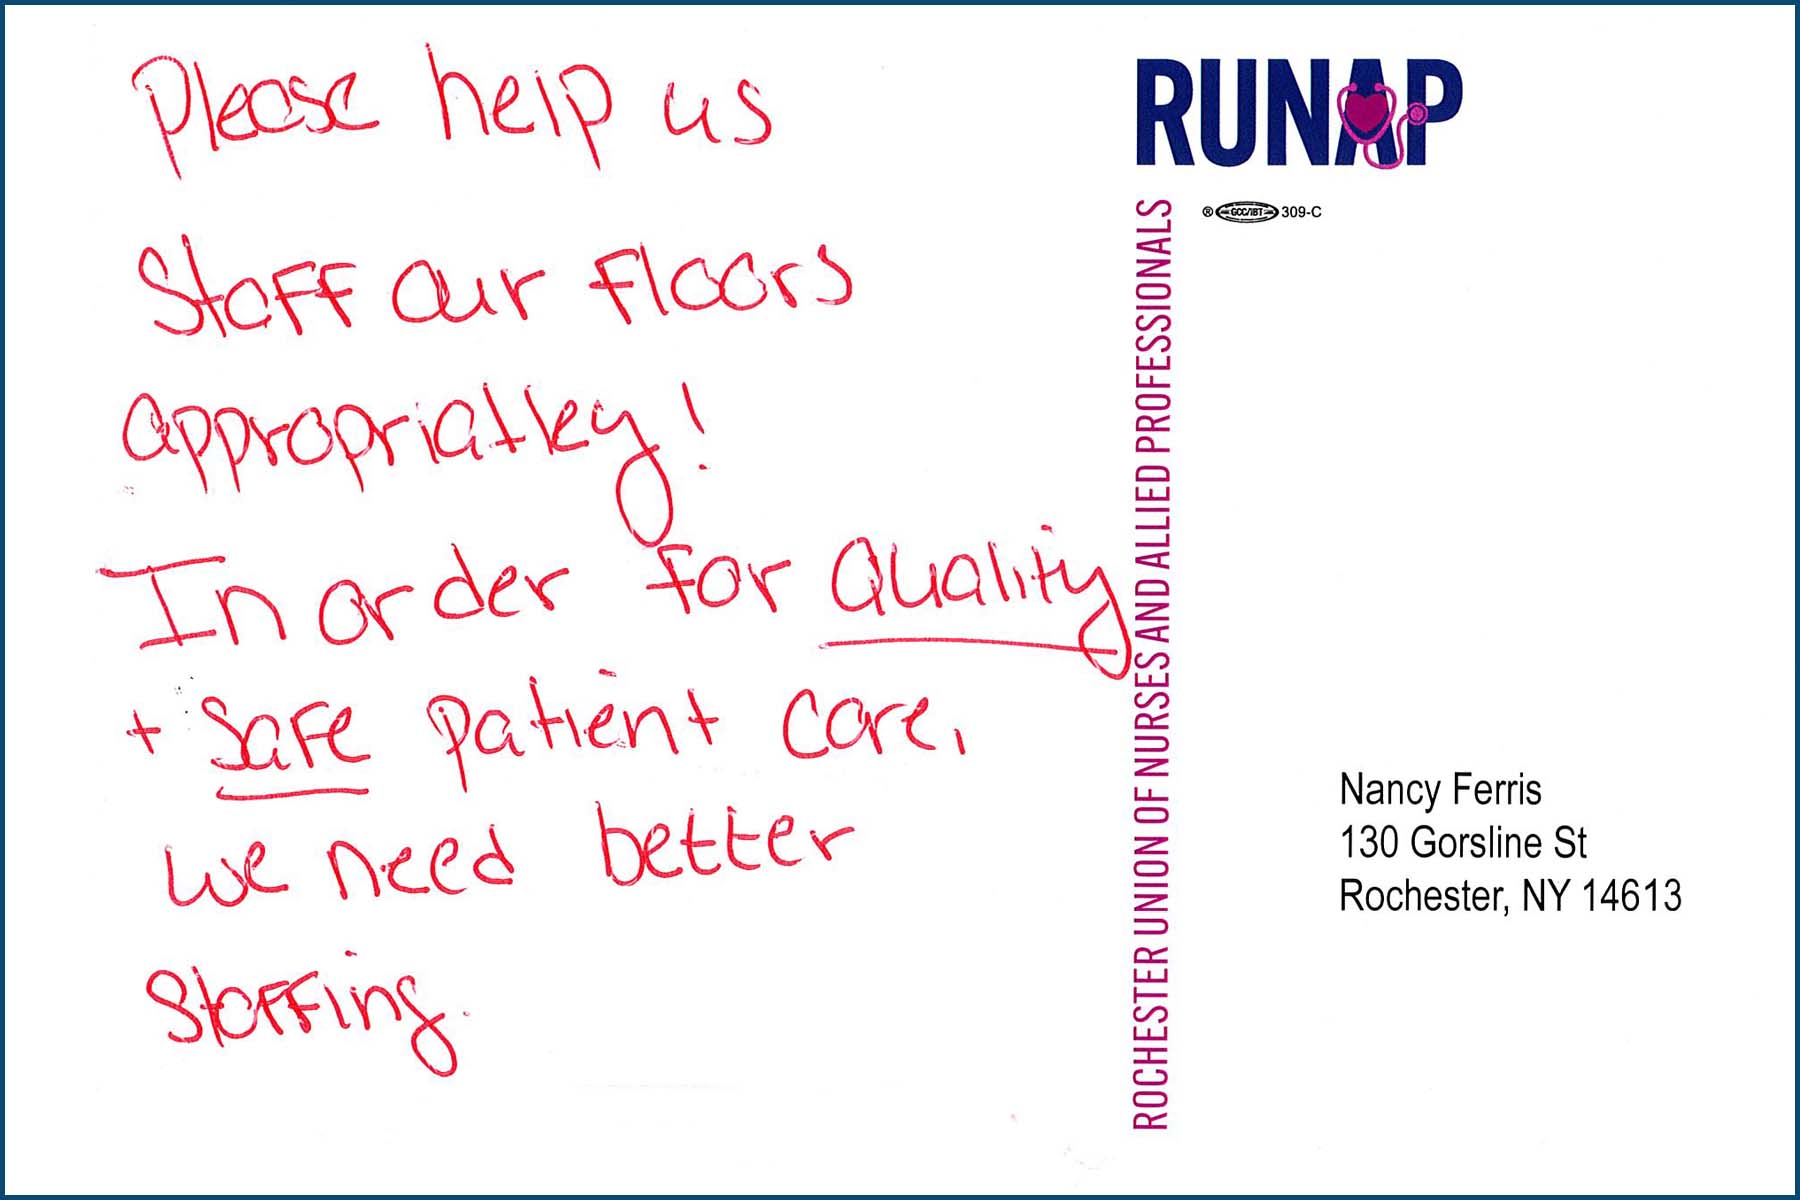 Please help us
Staff our floors
appropriatley!
In order for Quality
+ Safe patient care,
we need better
Staffing.
RUNAP
® GCC/IBT 309-C
ROCHESTER UNION OF NURSES AND ALLIED PROFESSIONALS
Nancy Ferris
130 Gorsline St
Rochester, NY 14613